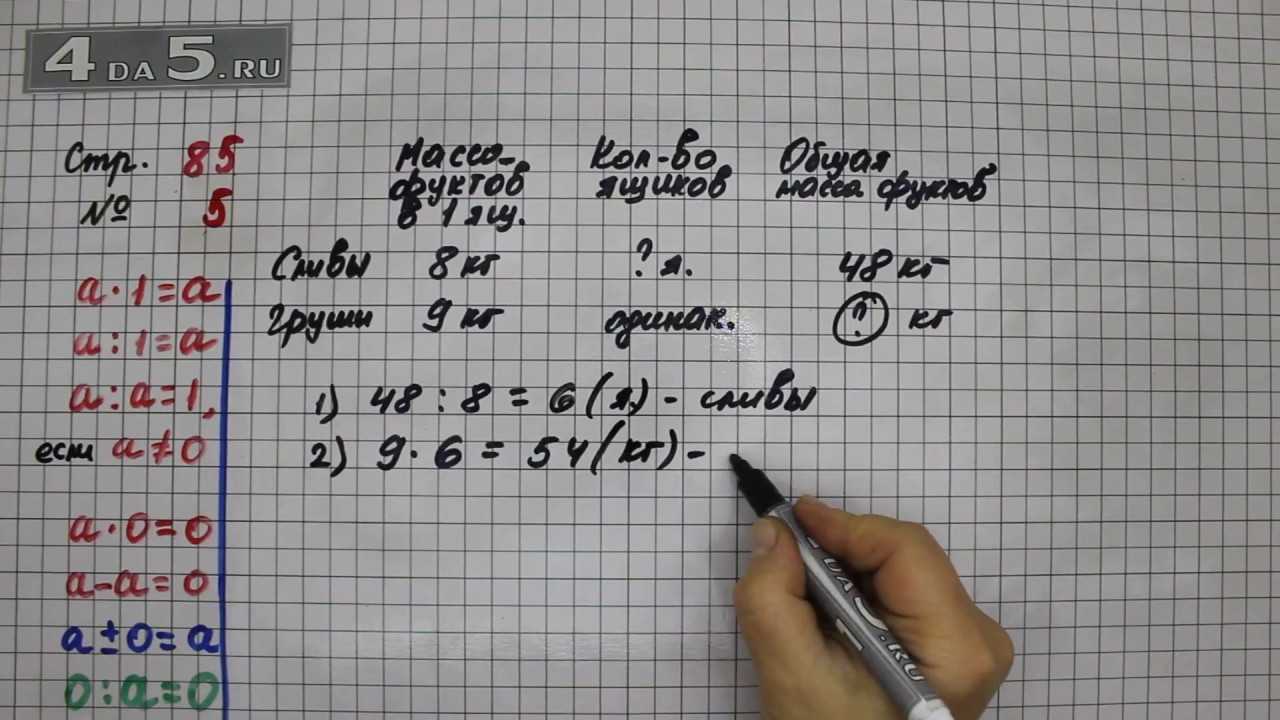 4DA5.RU
Стр. 85
№ 5
Масса фруктов в 1 ящ.
Кол-во ящиков
Общая масса фруктов
Сливы 8 кг ? я. 48 кг
Груши 9 кг одинак. ? кг
1) 48 : 8 = 6 (я.) - сливы
2) 9 · 6 = 54 (кг) -
a · 1 = a
a : 1 = a
a : a = 1,
если a ≠ 0
a · 0 = 0
a - a = 0
a ± 0 = a
0 : a = 0